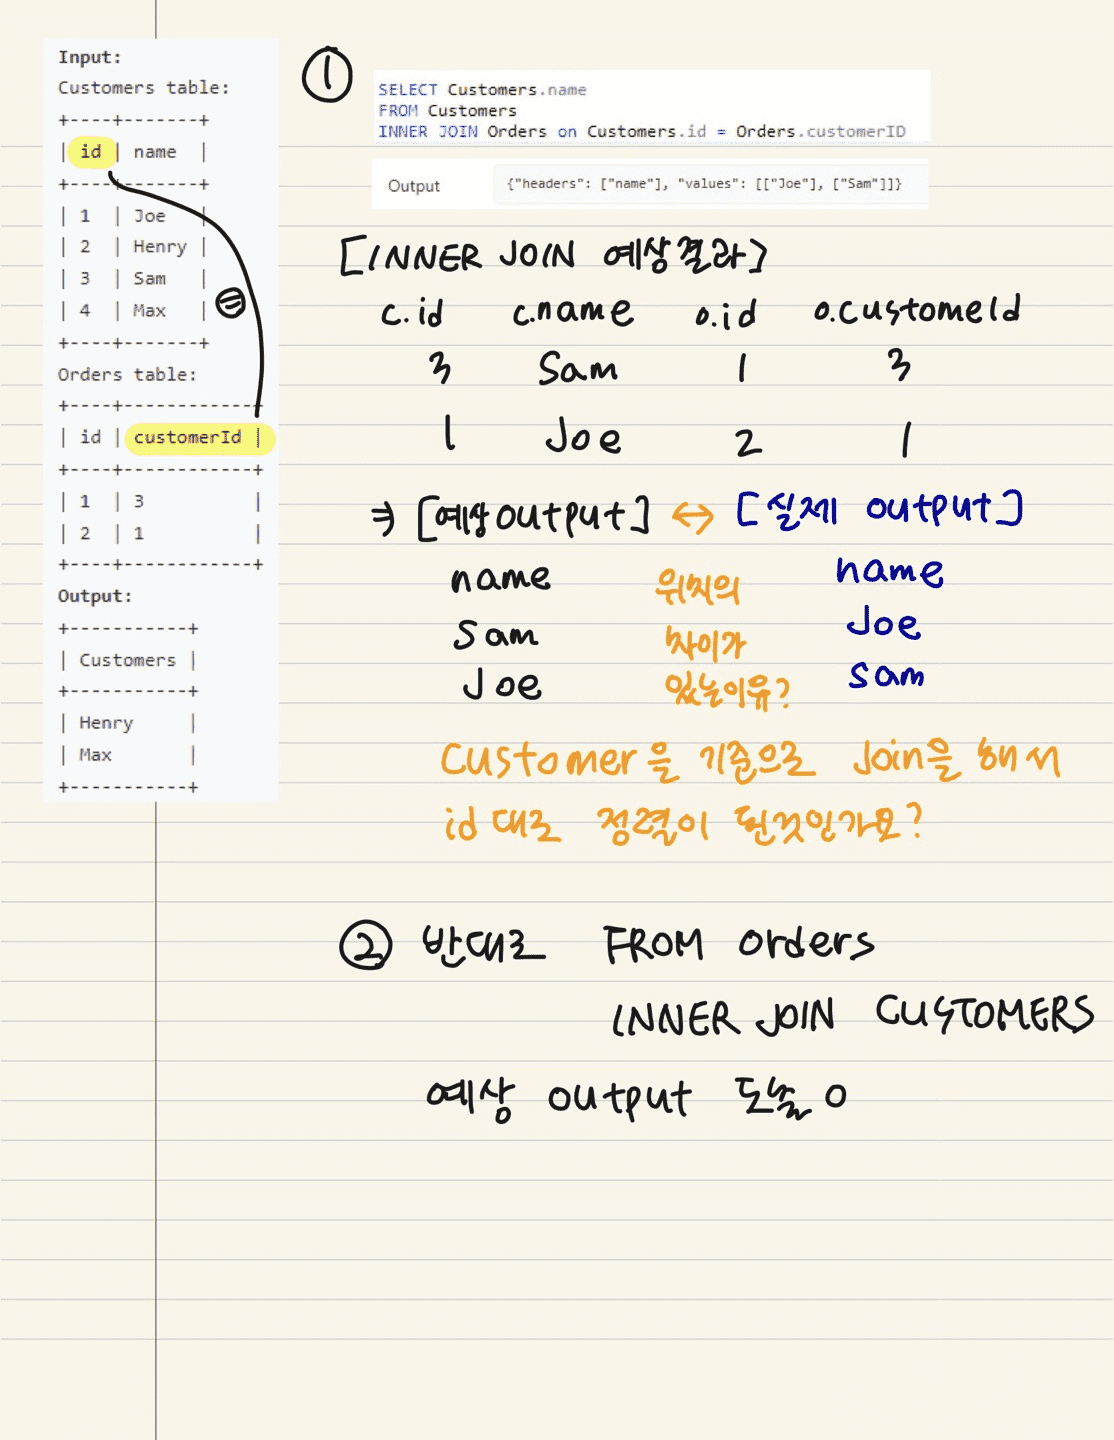 Input:
Customers table:
+----+-------+
| id | name  |
+----+-------+
| 1  | Joe   |
| 2  | Henry |
| 3  | Sam   |
| 4  | Max   |
+----+-------+
Orders table:
+----+------------+
| id | customerId |
+----+------------+
| 1  | 3          |
| 2  | 1          |
+----+------------+
Output:
+-----------+
| Customers |
+-----------+
| Henry     |
| Max       |
+-----------+
①
SELECT Customers.name
FROM Customers
INNER JOIN Orders on Customers.id = Orders.customerID
Output {"headers": ["name"], "values": [["Joe"], ["Sam"]]}
[INNER JOIN 예상결과]
c.id c.name o.id o.customeId
3 Sam 1 3
1 Joe 2 1
⇒ [예상 output] ↔ [실제 output]
name 위치의 name
Sam 차이가 Joe
Joe 있는이유? Sam
Customer을 기준으로 Join을 해서
id대로 정렬이 된것인가요?
② 반대로 FROM orders
INNER JOIN CUSTOMERS
예상 output 도출 O